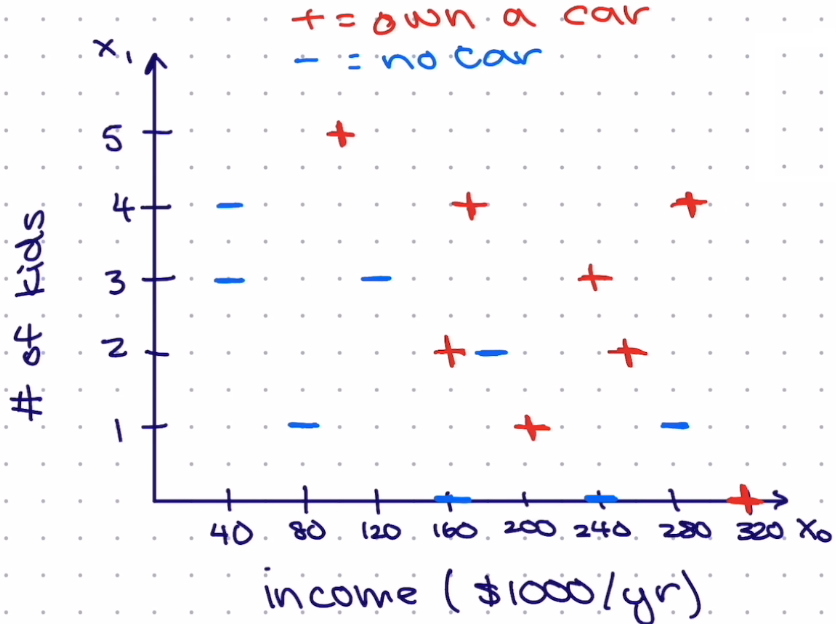 + = own a car
- = no car
x₁
5
4
3
2
1
# of kids
40 80 120 160 200 240 280 320 x₀
income ($1000/yr)